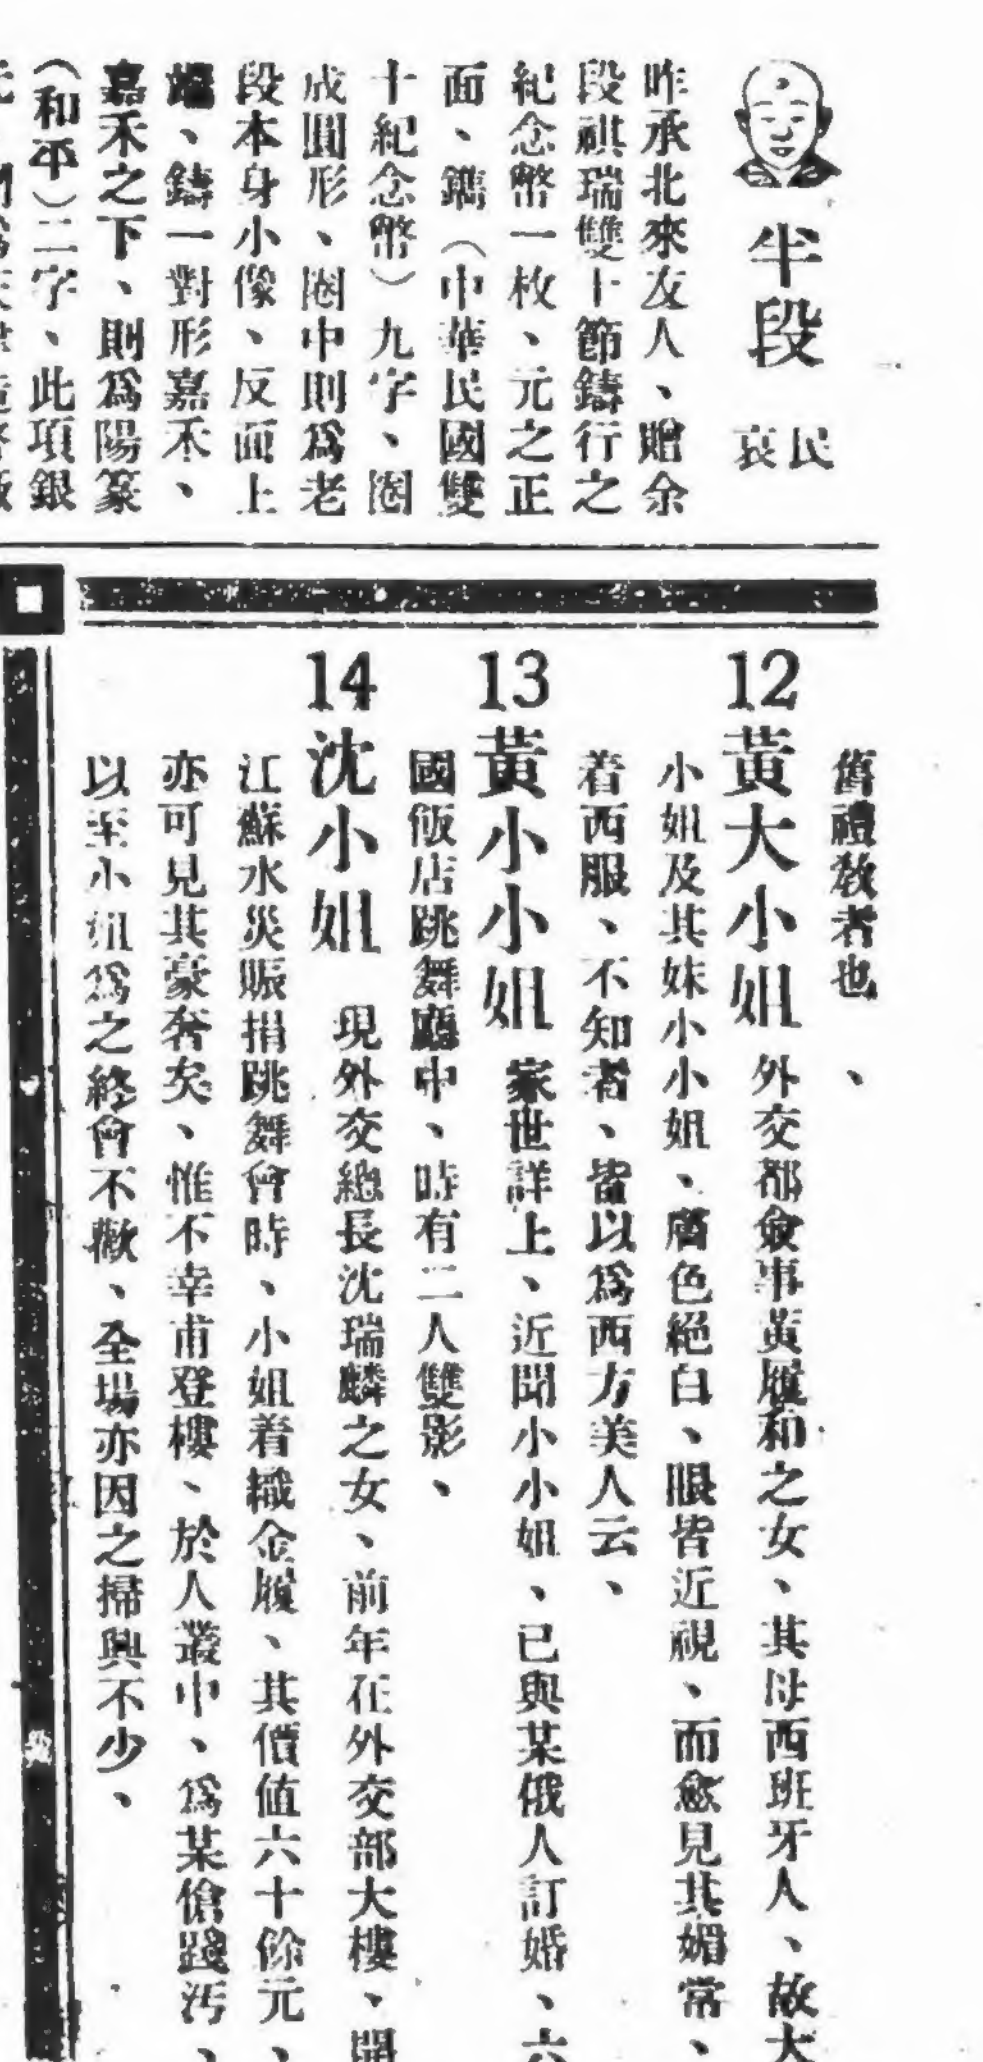 半段
哀民
昨承北來友人、贈余
段祺瑞雙十節鑄行之
紀念幣一枚、元之正
面、鐫（中華民國雙
十紀念幣）九字、圈
成圓形、圈中則爲老
段本身小像、反面上
端、鑄一對形嘉禾、
嘉禾之下、則爲陽篆
（和平）二字、此項銀
舊禮敎者也、
12黃大小姐 外交部僉事黃履和之女、其母西班牙人、故大
小姐及其妹小小姐、膚色絕白、眼皆近視、而愈見其媚常、
着西服、不知者、皆以爲西方美人云、
13黃小小姐 家世詳上、近聞小小姐、已與某俄人訂婚、六
國飯店跳舞廳中、時有二人雙影、
14沈小姐 現外交總長沈瑞麟之女、前年在外交部大樓、開
江蘇水災賑捐跳舞會時、小姐着織金履、其價值六十餘元、
亦可見其豪奢矣、惟不幸甫登樓、於人叢中、爲某傖踐汚、
以至小姐爲之終會不歡、全場亦因之掃興不少、